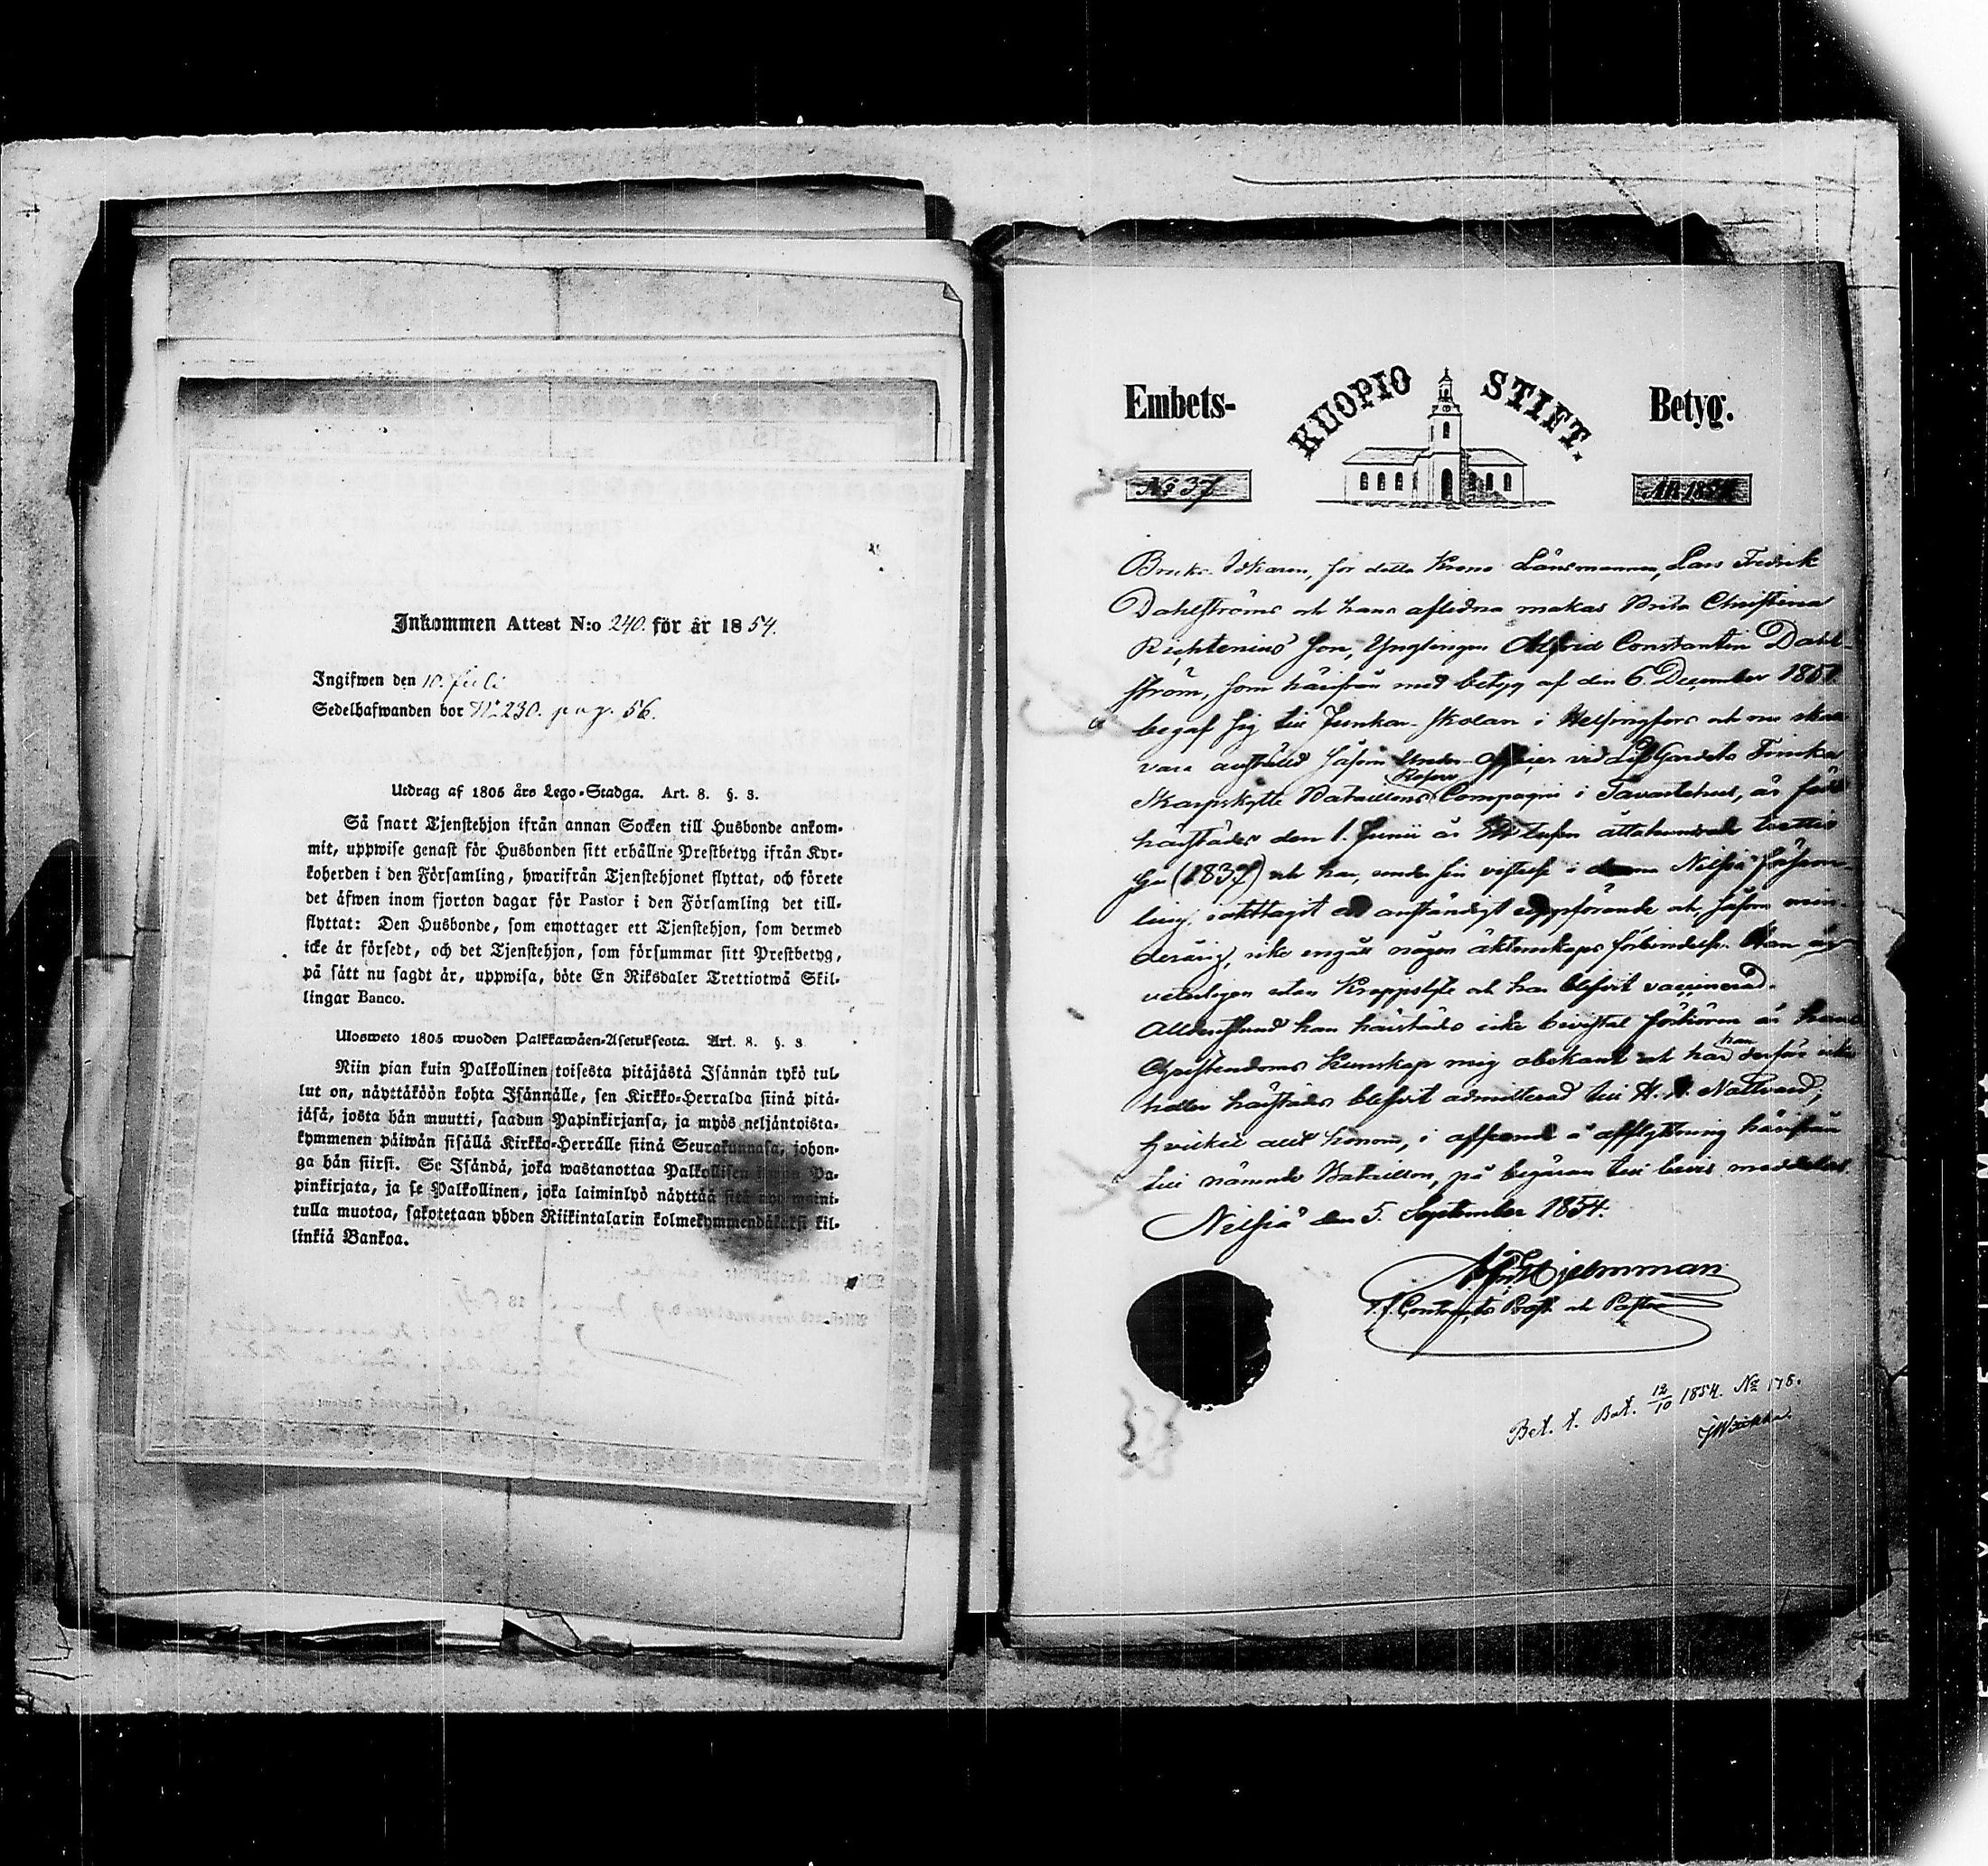 Inkommen Attest N:o 240. för år 1854.
Ingifwen den 10. Juli
Sedelhafwanden bor N:o 230. pag. 56.
Utdrag af 1805 års Lego-Stadga. Art. 8. §. 3.
Så snart Tjenstehjon ifrån annan Socken till Husbonde ankom-
mit, uppwise genast för Husbonden sitt erhållne Prestbetyg ifrån Kyr-
koherden i den Församling, hwarifrån Tjenstehjonet flyttat, och förete
det äfwen inom fjorton dagar för Pastor i den Församling det till-
flyttat: Den Husbonde, som emottager ett Tjenstehjon, som dermed
icke är försedt, och det Tjenstehjon, som försummar sitt Prestbetyg,
på sätt nu sagdt är, uppwisa, böte En Riksdaler Trettiotwå Skil-
lingar Banco.
Ulosweto 1805 wuoden Palkkawäen-Asetuksesta. Art. 8. §. 3.
Niin pian kuin Palkollinen toisesta pitäjästä Isännän tykö tul-
lut on, näyttäköön kohta Isännälle, sen Kirkko-Herralda siinä pitä-
jäsä, josta hän muutti, saadun Papinkirjansa, ja myös neljäntoista-
kymmenen päiwän sisällä Kirkko-Herralle siinä Seurakunnasa, johon-
ga hän siirsi. Se Isändä, joka wastanottaa Palkollisen ilman Pa-
pinkirjata, ja se Palkollinen, joka laiminlyö näyttää sitä nyt maini-
tulla muotoa, sakotetaan yhden Riikintalarin kolmekymmendäkaksi kil-
linkiä Bankoa.
Embets- KUOPIO STIFT. Betyg.
No 37 ÅR 1854
Bruks Idkaren, för detta Krono Länsmannen, Lars Fredrik
Dahlströms och hans aflidna makas Brita Christina
Richtenius son, Ynglingen Alfrid Constantin Dahl-
ström, som härifrån med betyg af den 6. December 1851
begaf sig till Junkar-Skolan i Helsingfors och nu skall
vara anställd såsom Under-Officer vid LifGardets Finska
Skarpskytte Bataillons Reserv Compagni i Tavastehus, är född
härstädes den 1. Junii år Ett tusen åttahundrade trettio
sju (1837) och har, under sin vistelse i denna Nilsiä försam-
ling, iakttagit ett anständigt uppförande och såsom min-
derårig, icke ingått någon äktenskaps förbindelse. Han är
veterligen utan Kroppslyte och har blifvit vaccinerad.
Alldenstund han härstädes icke bevistat förhören är hans
Christendoms kunskap mig obekant och har han derför icke
heller härstädes blifvit admitterad till H. H. Nattvard,
hvilket allt honom, i afseende å afflyttning härifrån
till nämnde Bataillon, på begäran till bevis meddelas.
Nilsiä den 5. September 1854.
Hjelmman
T.f. Contracts Prost och Pastor
Bet. t. Bat. 12/10 1854. No 178.